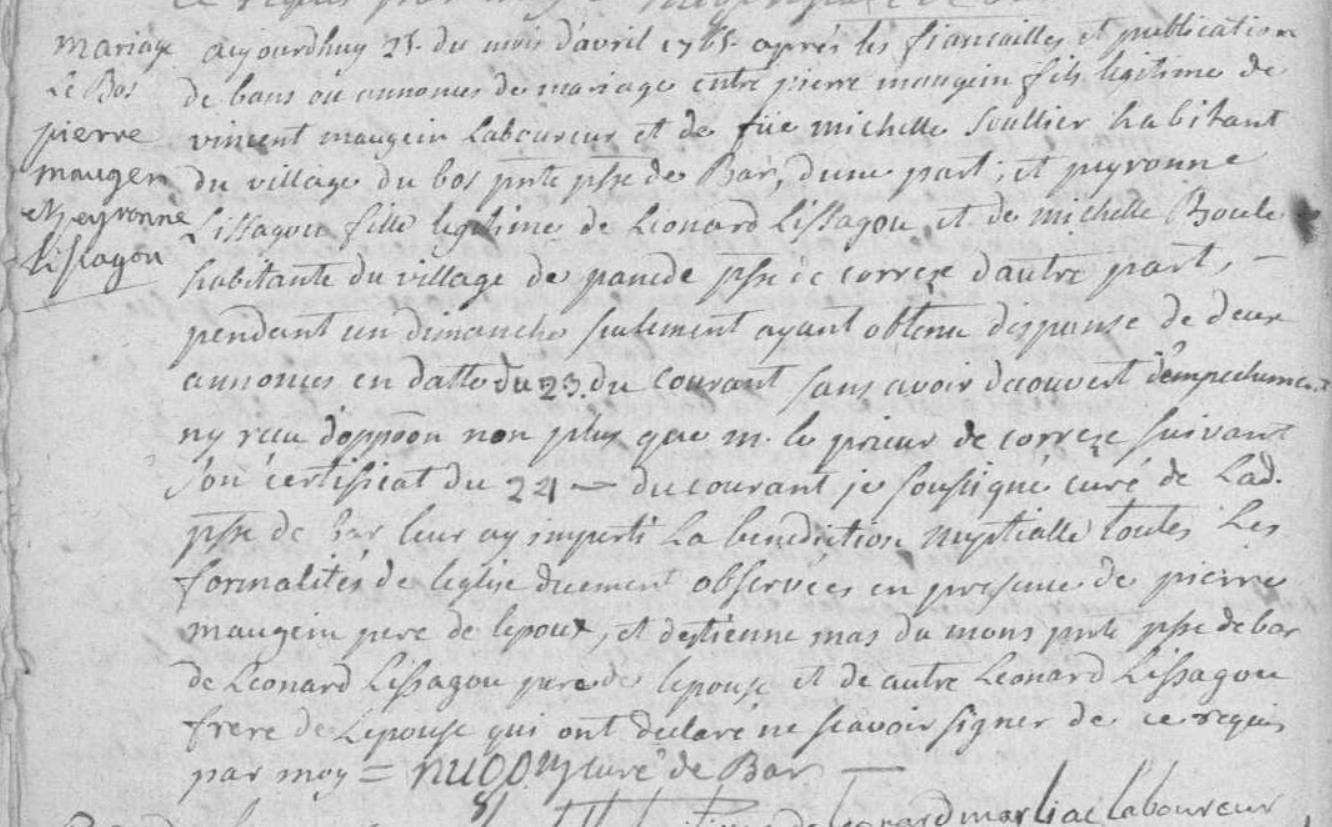 mariage
Le Bos
pierre
maugen
et peyronne
Lissagou
aujourdhuy 25 du mois d'avril 1765 après les fiancailles et publication
de bans ou annonces de mariage entre pierre maugein fils legitime de
vincent maugein Laboureur et de füe michelle Soullier habitant
du village du bos pnte psse de Bar, dune part; et peyronne
Lissagou fille legitime de Leonard Lissagou, et de michelle Boule
habitante du village de panede psse de correze d'autre part, –
pendant un dimanche seulement ayant obtenu despanse de deux
annonces en datte du 23. du courant sans avoir decouvert d'empechement
ny reçu d'oppoon non plus que m. le prieur de correze suivant
son certificat du 24 – du courant je soussigné curé de Lad.
psse de bar leur ay imparti La benediction nuptialle toutes Les
formalités de leglise duement observées en presence de pierre
maugein pere de lepoux, et destienne mas du mons pnte psse de bar
de Leonard Lissagou pere de lepouse et de autre Leonard Lissagou
frere de Lepouse qui ont declaré ne scavoir signer de ce requis
par moy = curé de Bar —
de Leonard marliac laboureur